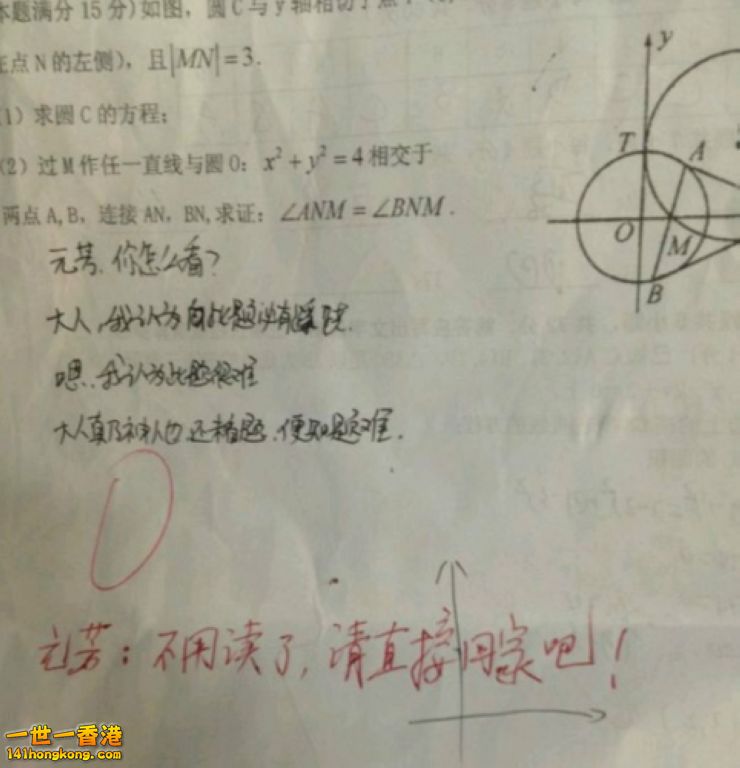 本题满分 15 分)如图，圆 C 与 y 轴相切于点 T
在点 N 的左侧)，且|MN|=3.
(1) 求圆 C 的方程；
(2) 过 M 作任一直线与圆 O：x²+y²=4 相交于
两点 A,B，连接 AN，BN,求证：∠ANM=∠BNM .
y
T
A
O
M
B
元芳,你怎么看?
大人,我认为此题
嗯,我认为此题很难
大人真乃神人也,还看题,便知题难.
0
元芳：不用读了,请直接回家吧!
一世一香港
141hongkong.com